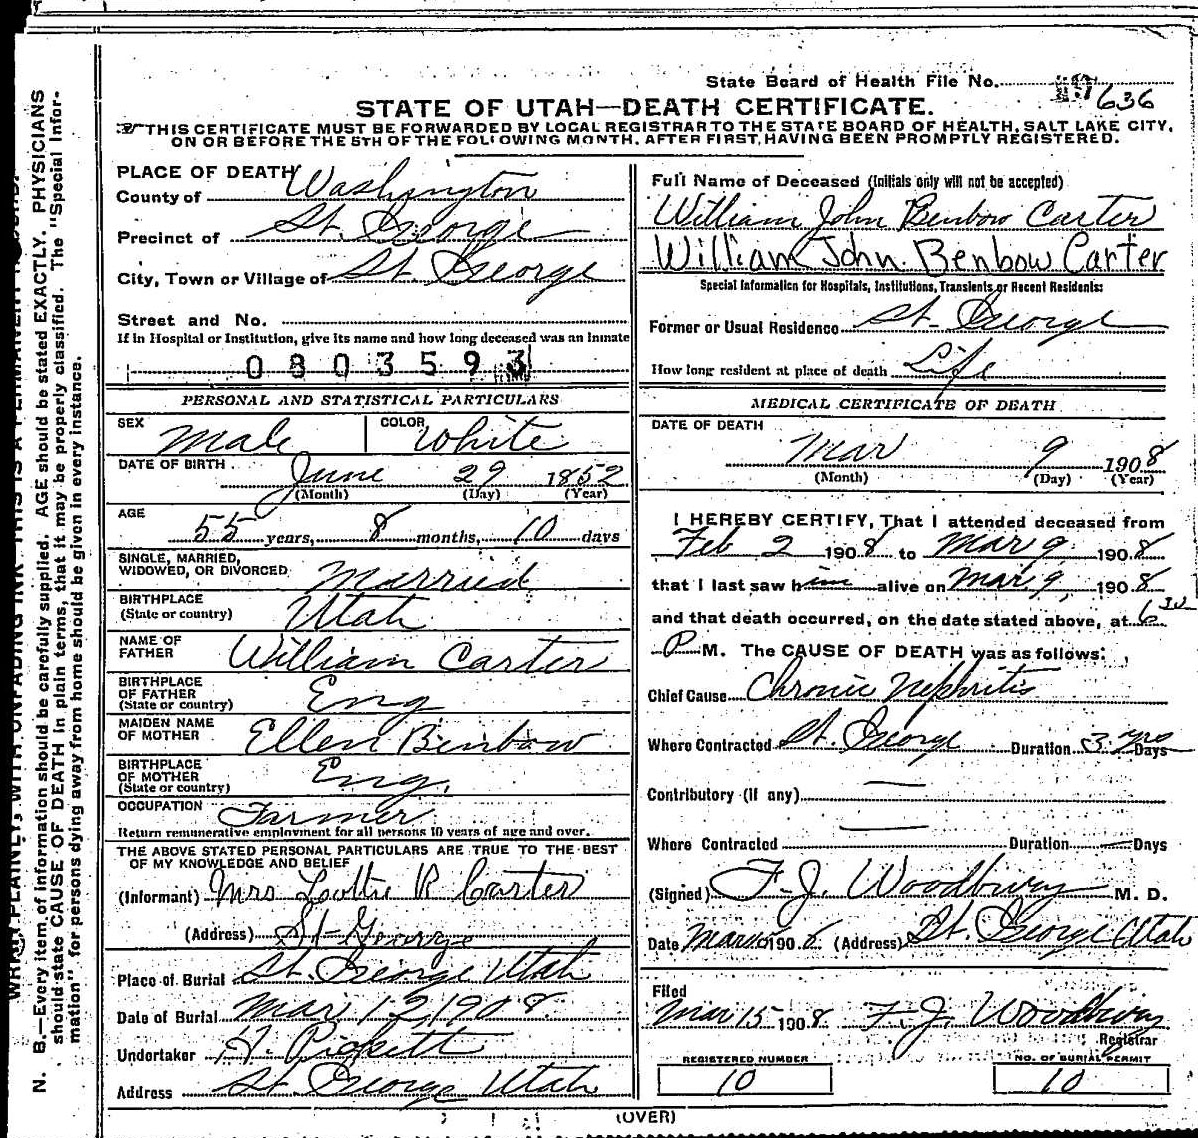 State Board of Health File No. 636
STATE OF UTAH—DEATH CERTIFICATE.
THIS CERTIFICATE MUST BE FORWARDED BY LOCAL REGISTRAR TO THE STATE BOARD OF HEALTH, SALT LAKE CITY,
ON OR BEFORE THE 5TH OF THE FOLLOWING MONTH, AFTER FIRST HAVING BEEN PROMPTLY REGISTERED.
PLACE OF DEATH
County of Washington
Precinct of St. George
City, Town or Village of St. George
Street and No.
If in Hospital or Institution, give its name and how long deceased was an inmate
0803593
PERSONAL AND STATISTICAL PARTICULARS
SEX Male COLOR White
DATE OF BIRTH June 29 1852
(Month) (Day) (Year)
AGE
55 years, 8 months, 10 days
SINGLE, MARRIED,
WIDOWED, OR DIVORCED Married
BIRTHPLACE
(State or country) Utah
NAME OF
FATHER William Carter
BIRTHPLACE
OF FATHER
(State or country) Eng
MAIDEN NAME
OF MOTHER Ellen Benbow
BIRTHPLACE
OF MOTHER
(State or country) Eng.
OCCUPATION Farmer
Return remunerative employment for all persons 10 years of age and over.
THE ABOVE STATED PERSONAL PARTICULARS ARE TRUE TO THE BEST
OF MY KNOWLEDGE AND BELIEF
(Informant) Mrs Lottie R Carter
(Address) St George
Place of Burial St. George Utah
Date of Burial Mar 12 1908
Undertaker A. Pickett
Address St George Utah
Full Name of Deceased (Initials only will not be accepted)
William John Benbow Carter
William John Benbow Carter
Special Information for Hospitals, Institutions, Transients or Recent Residents:
Former or Usual Residence St. George
How long resident at place of death Life
MEDICAL CERTIFICATE OF DEATH
DATE OF DEATH
Mar 9 1908
(Month) (Day) (Year)
I HEREBY CERTIFY, That I attended deceased from
Feb 2 1908 to Mar 9 1908
that I last saw him alive on Mar 9, 1908
and that death occurred, on the date stated above, at 6 30
P M. The CAUSE OF DEATH was as follows:
Chief Cause Chronic Nephritis
Where Contracted St. George Duration 3 yrs Days
Contributory (if any) —
Where Contracted — Duration — Days
(Signed) F. J. Woodbury M. D.
Date Mar 1908 (Address) St. George Utah
Filed
Mar 15 1908 F. J. Woodbury
Registrar
REGISTERED NUMBER NO. OF BURIAL PERMIT
10 10
(OVER)
N. B.—Every item of information should be carefully supplied. AGE should be stated EXACTLY. PHYSICIANS
should state CAUSE OF DEATH in plain terms, that it may be properly classified. The "Special Infor-
mation" for persons dying away from home should be given in every instance.
WITH UNFADING INK THIS IS A PERMANENT